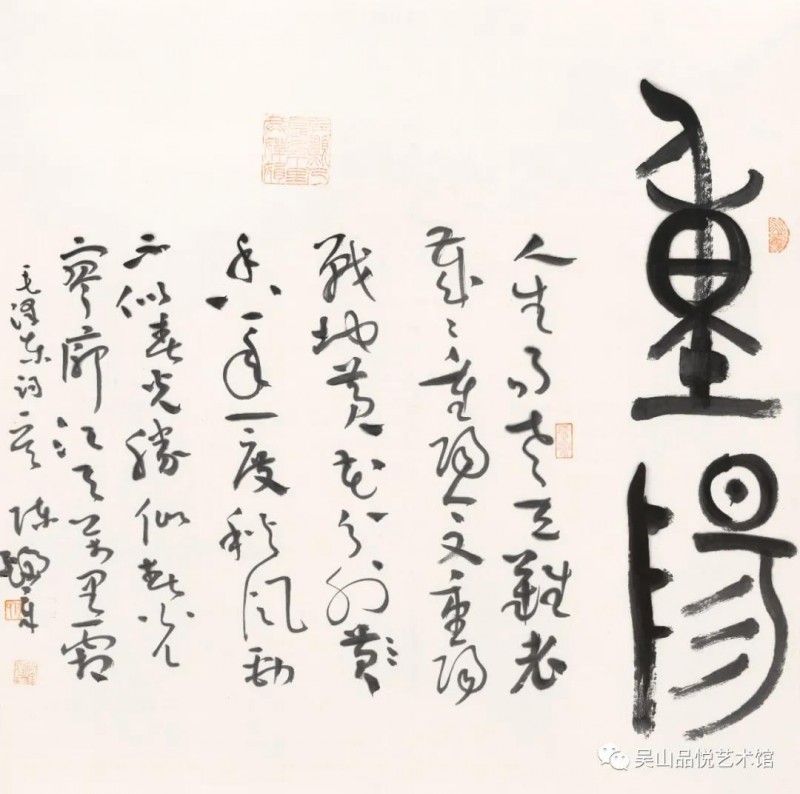 重陽
人生易老天難老
歲〻重陽今又重陽
戰地黄花分外
香一年一度秋風勁
不似春光勝似春光
寥廓江天萬里霜
毛澤東詞一首 陳
吴山品悦艺术馆